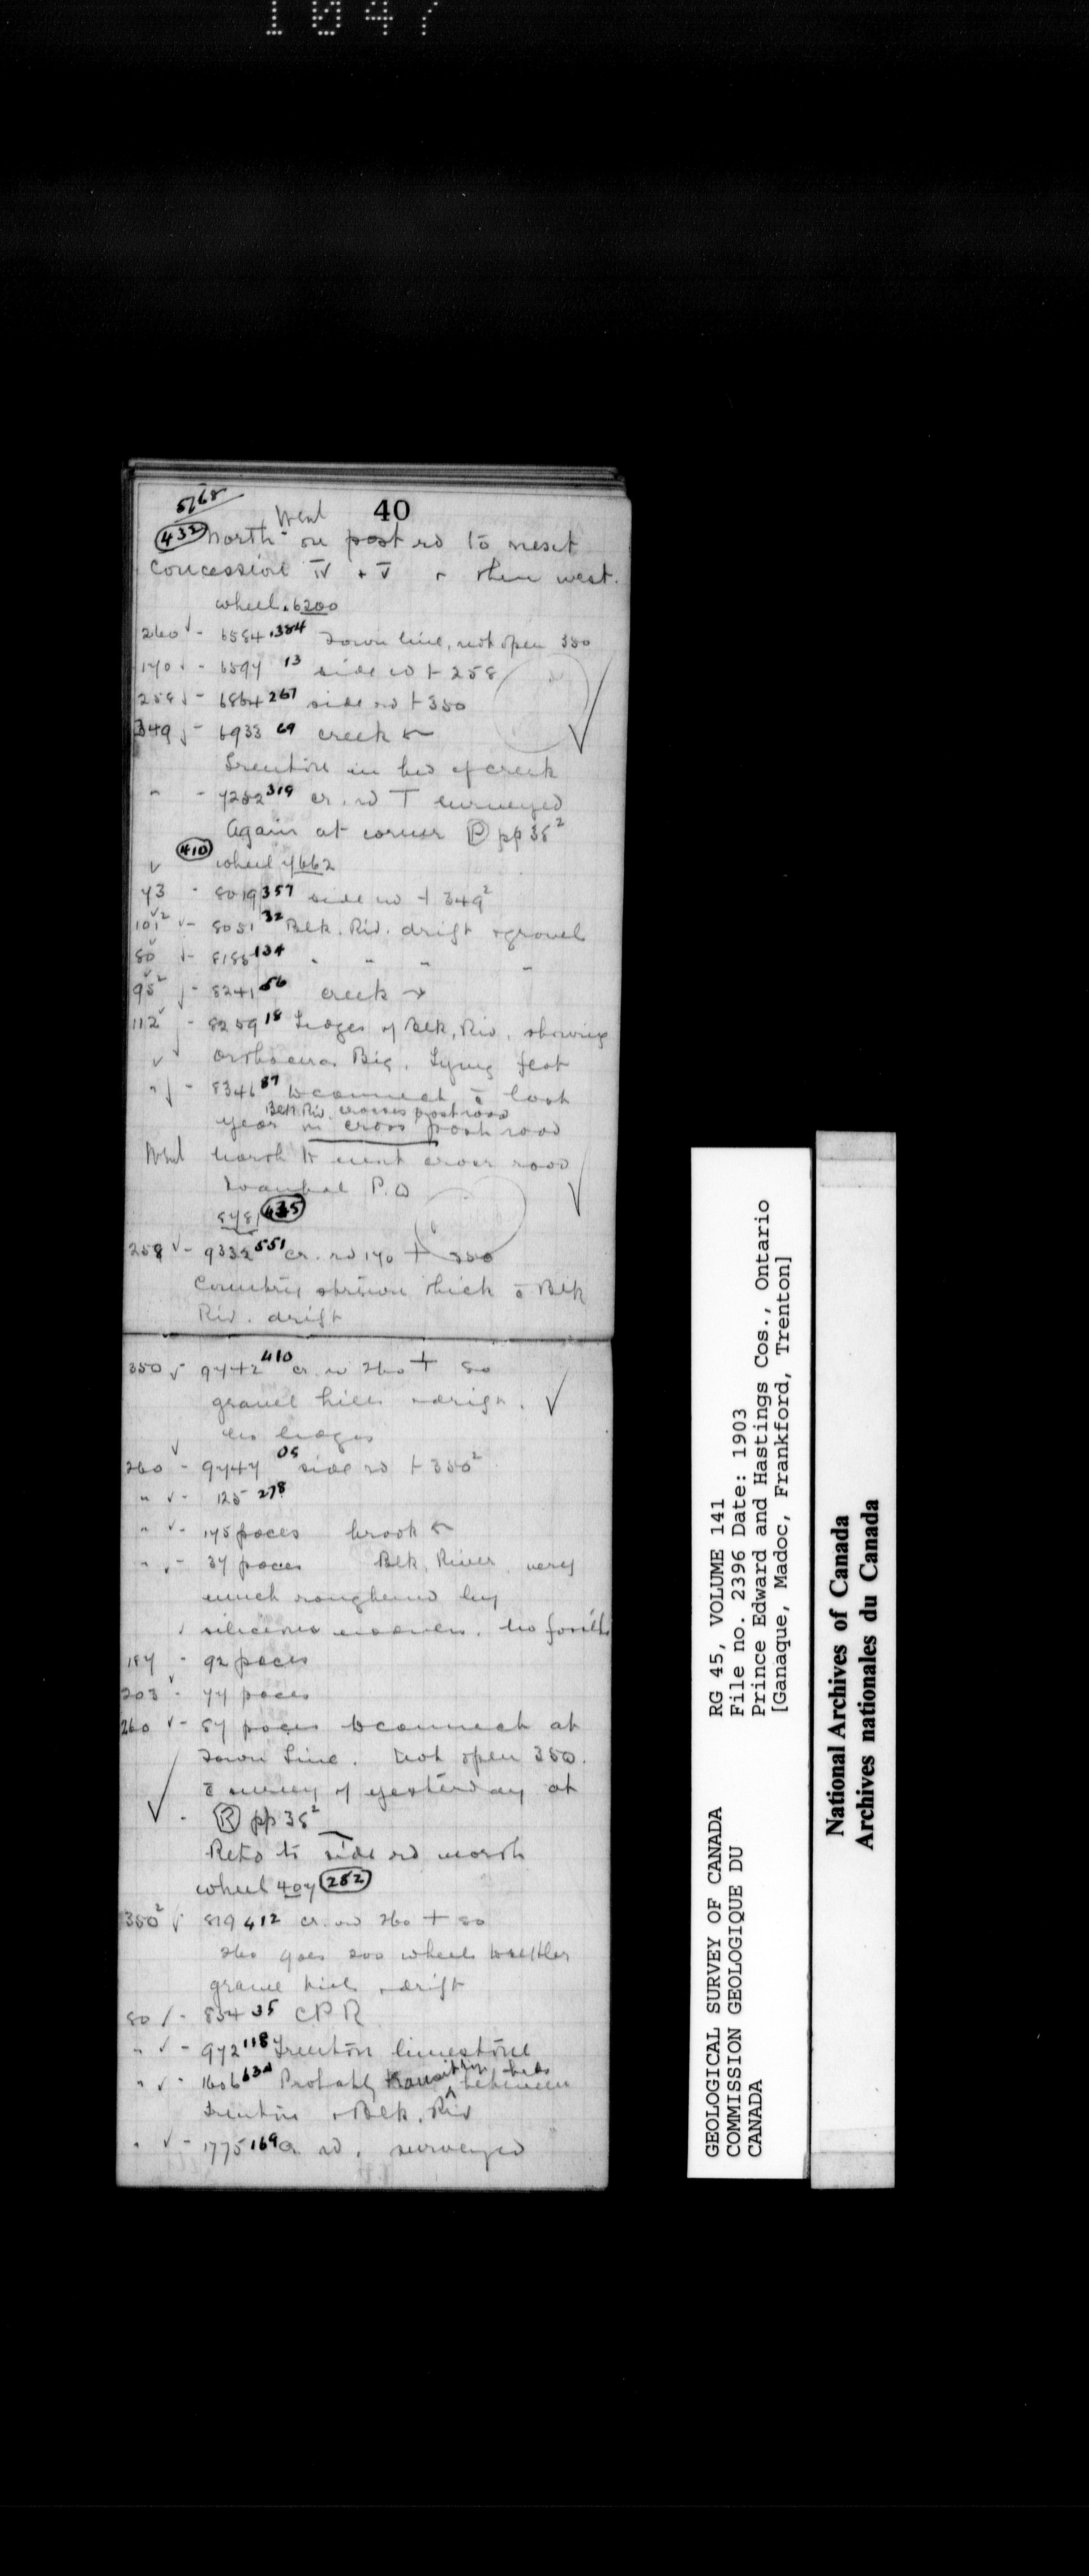 1047
5768
40
Went
432 North on post rd to next
Concession IV + V + then west.
wheel. 6200
260 - 6584 .384 Town line, not open 350
170 - 6597 13 side rd 258
258 - 6864 267 side rd 350
349 - 6933 69 creek
Trenton in bed of creek
" - 7252 319 cr. rd T surveyed
Again at corner P pp 38²
410 wheel 7662
73 - 8019 357 side rd 349²
101² - 8051 32 Blk. Riv. drift + gravel
80 - 8185 134 " " " "
95² - 8241 56 creek →
112 - 8259 18 Ledges of Blk. Riv. showing
Big. Lying flat
" - 8346 87 to connect last
Blk Riv. crosses post road
year in cross post road
Went north to next cross road
P.O
8781 435
258 - 9332 551 cr. rd 170 + 350
Country strewn thick Blk
Riv. drift
350 - 9742 410 cr. rd 260 + 80
gravel hills + drift.
no ledges
260 - 9747 05 side rd 350²
" - 125 278
" - 175 paces brook
" - 37 paces Blk. River very
much roughened by
silicious no fossils
187 - 92 paces
203 - 77 paces
260 - 87 paces to connect at
Town Line. Not open 350.
survey of yesterday at
R pp 38²
Retd to side rd north
wheel 407 252
350² 819 412 cr. rd 260 + 80
260 goes 200 wheel
gravel hills + drift
80 - 854 35 CPR
" - 972 118 Trenton limestone
" - 1606 634 Probably transition beds between
Trenton + Blk. Riv
" - 1775 169 cr rd. surveyed
GEOLOGICAL SURVEY OF CANADA
COMMISSION GEOLOGIQUE DU
CANADA
RG 45, VOLUME 141
File no. 2396 Date: 1903
Prince Edward and Hastings Cos., Ontario
[Ganaque, Madoc, Frankford, Trenton]
National Archives of Canada
Archives nationales du Canada